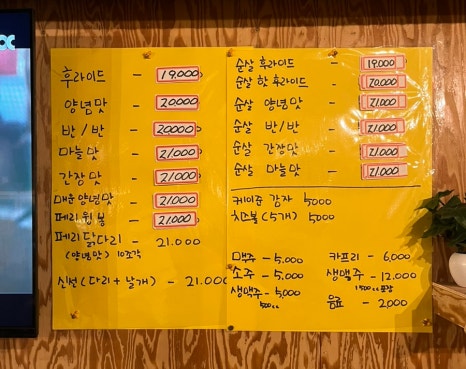 후라이드 - 19,000
양념맛 - 20000
반/반 - 20000
마늘맛 - 21,000
간장맛 - 21,000
매운양념맛 - 21,000
페리윙봉 - 21,000
페리닭다리 - 21.000
(양념맛) 10조각
신선(다리+날개) - 21.000
순살 후라이드 - 19,000
순살 핫후라이드 - 20,000
순살 양념맛 - 21,000
순살 반/반 - 21,000
순살 간장맛 - 21,000
순살 마늘맛 - 21,000
케이준 감자 5000
치즈볼(5개) 5000
맥주 - 5.000
소주 - 5.000
생맥주 - 5,000
500cc
카프리 - 6,000
생맥주 - 12,000
1500cc
음료 - 2000